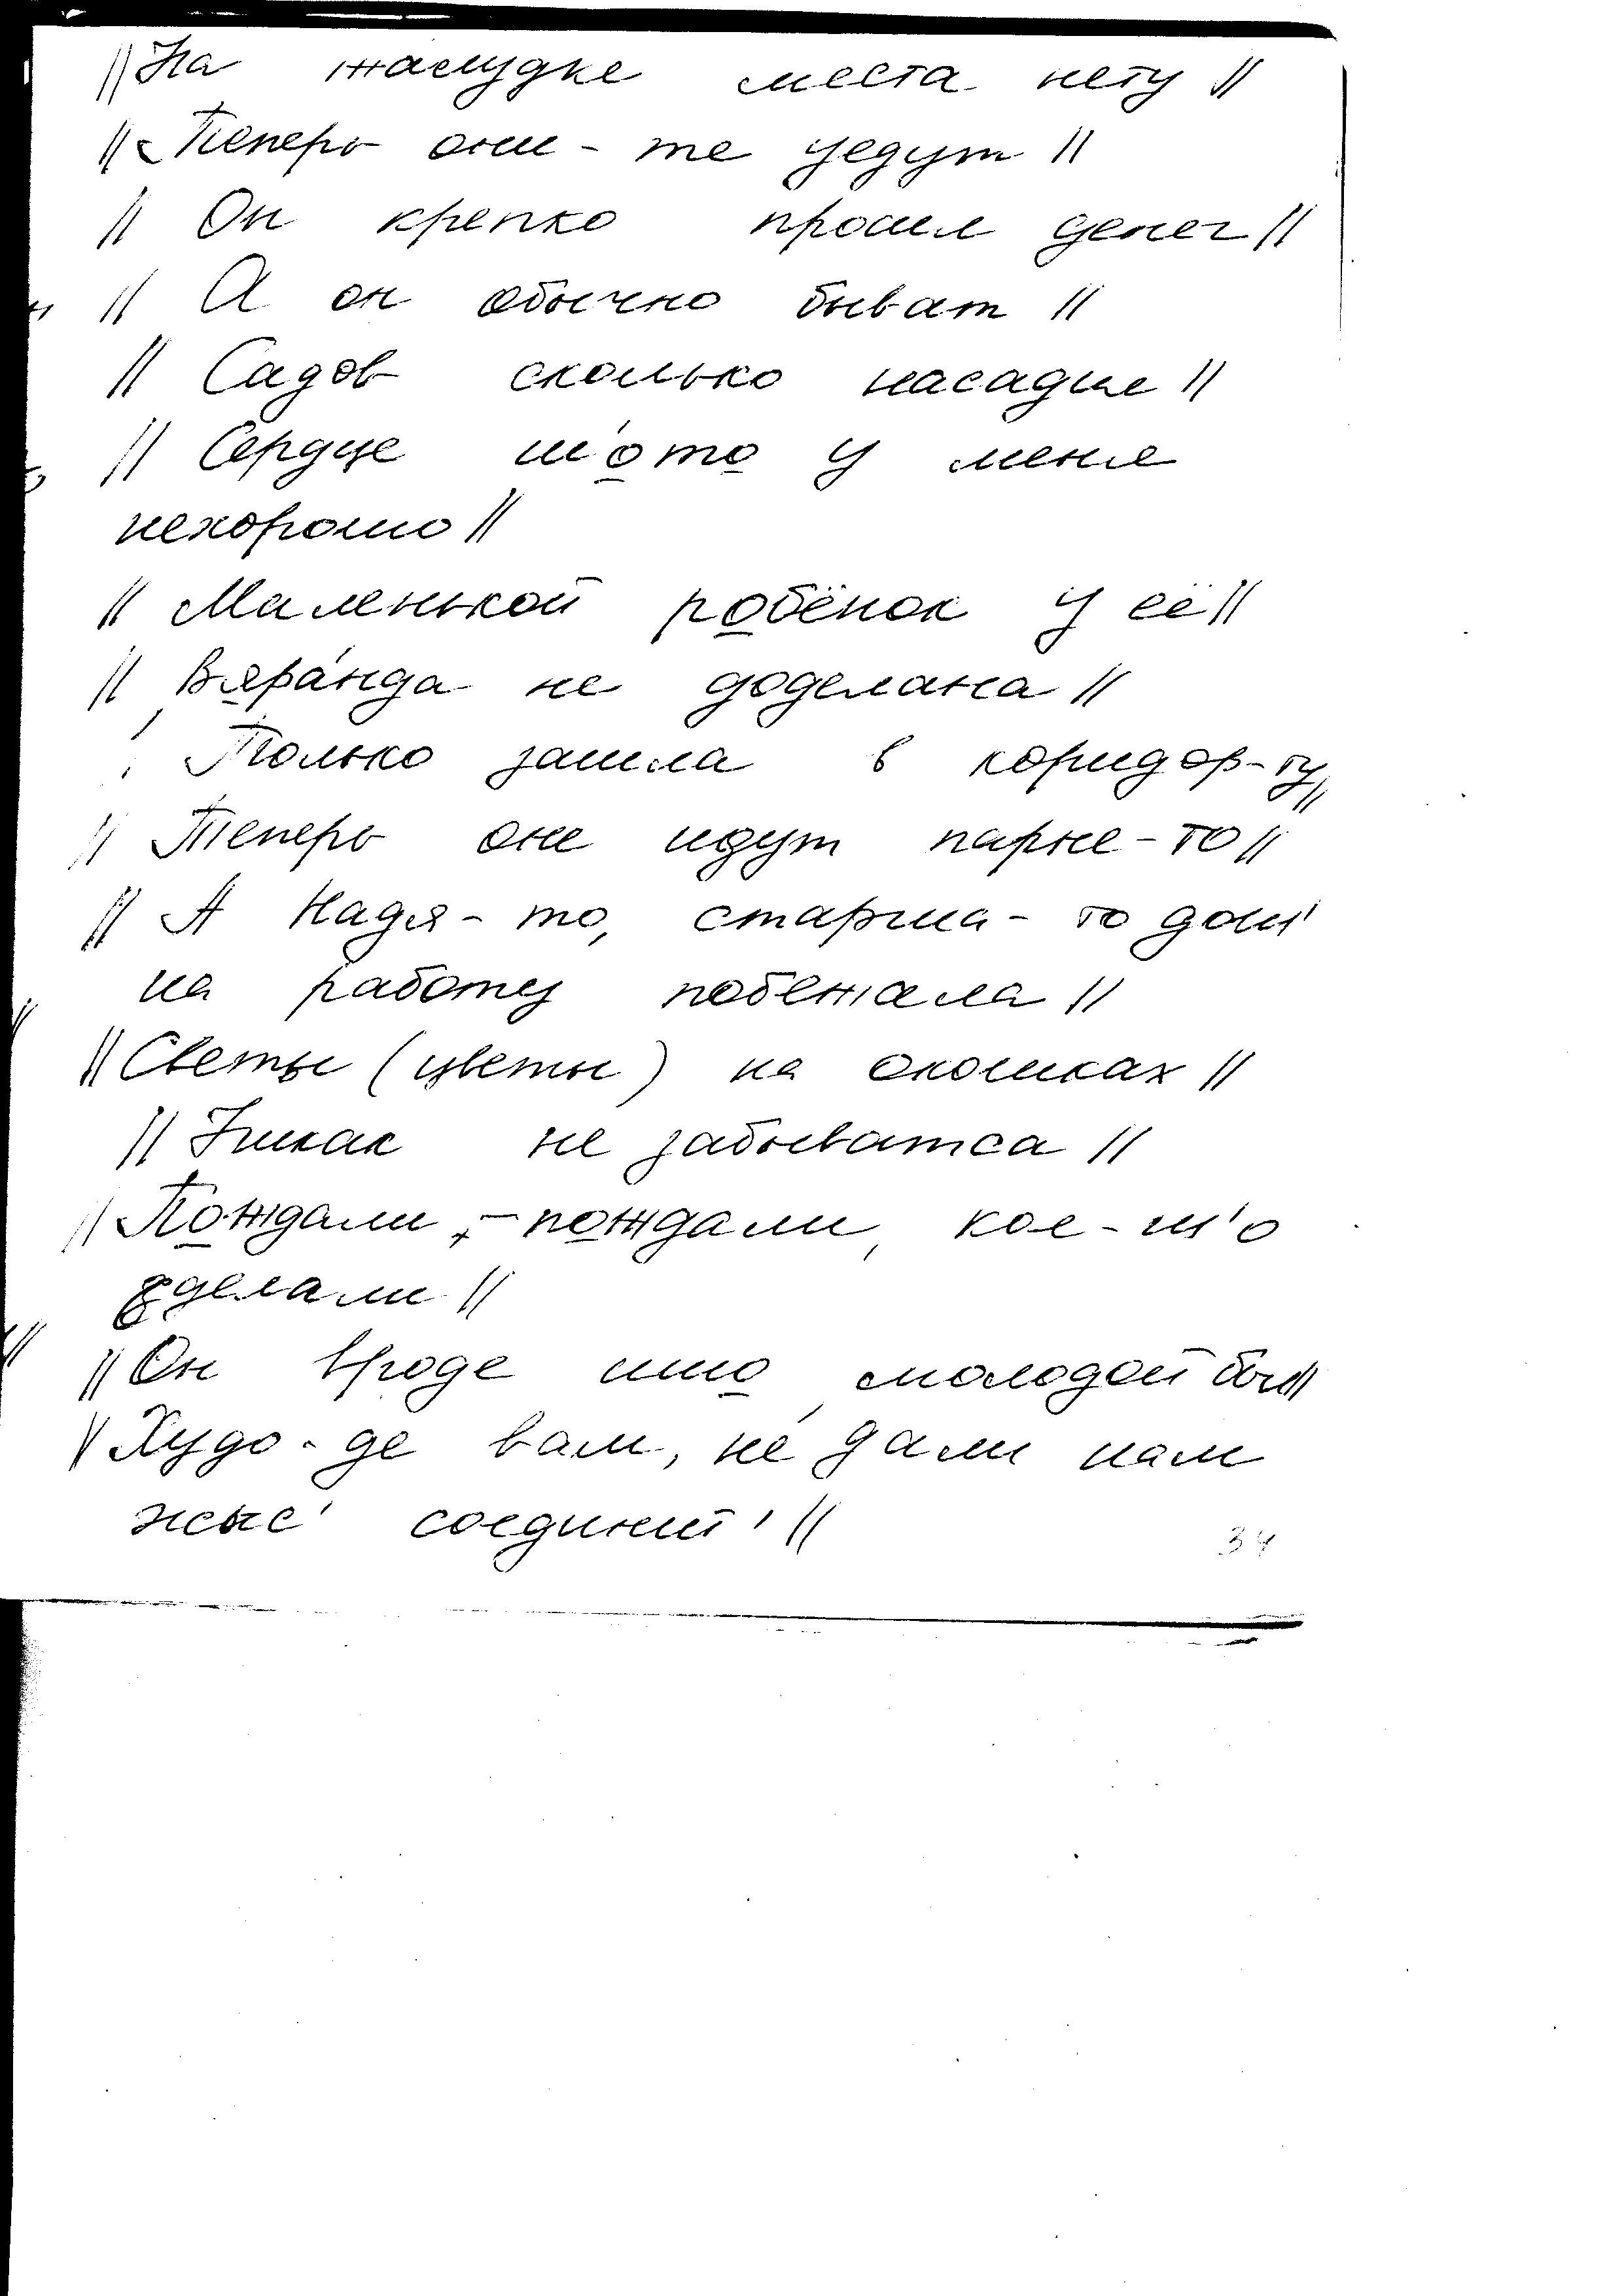 // На жалудке места нету //
// Теперь они - те уедут //
// Он крепко просил денег //
// А он обычно быват //
// Садов сколько насадил //
// Сердце ш'ото у меня
нехорошо //
// Маленькой робёнок у её //
// Вяранда не доделана //
/ Только зашла в коридор-ту //
// Теперь оне идут парне-то //
// А Надя-то, старша-то доц'
на работу побежала //
// Светы (цветы) на окошках //
// Никак не забыватса //
// Пождали - пождали, кое-ш'о
сделали //
// Он вроде што молодой был //
// Худо-де вам, не дали нам
жыс' соединит' //
34